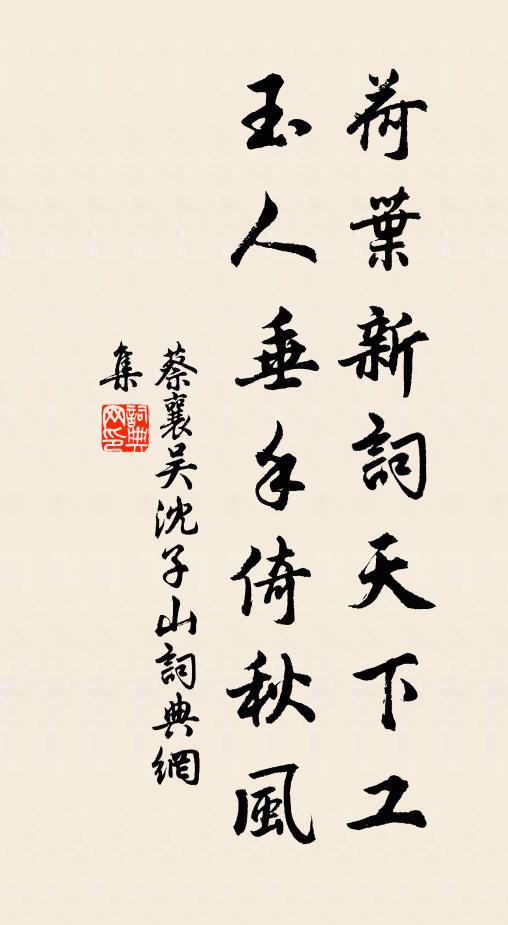 荷葉新詞天下工
玉人垂手倚秋風
蔡襄吴沈子山詞典網
集
詞典网印